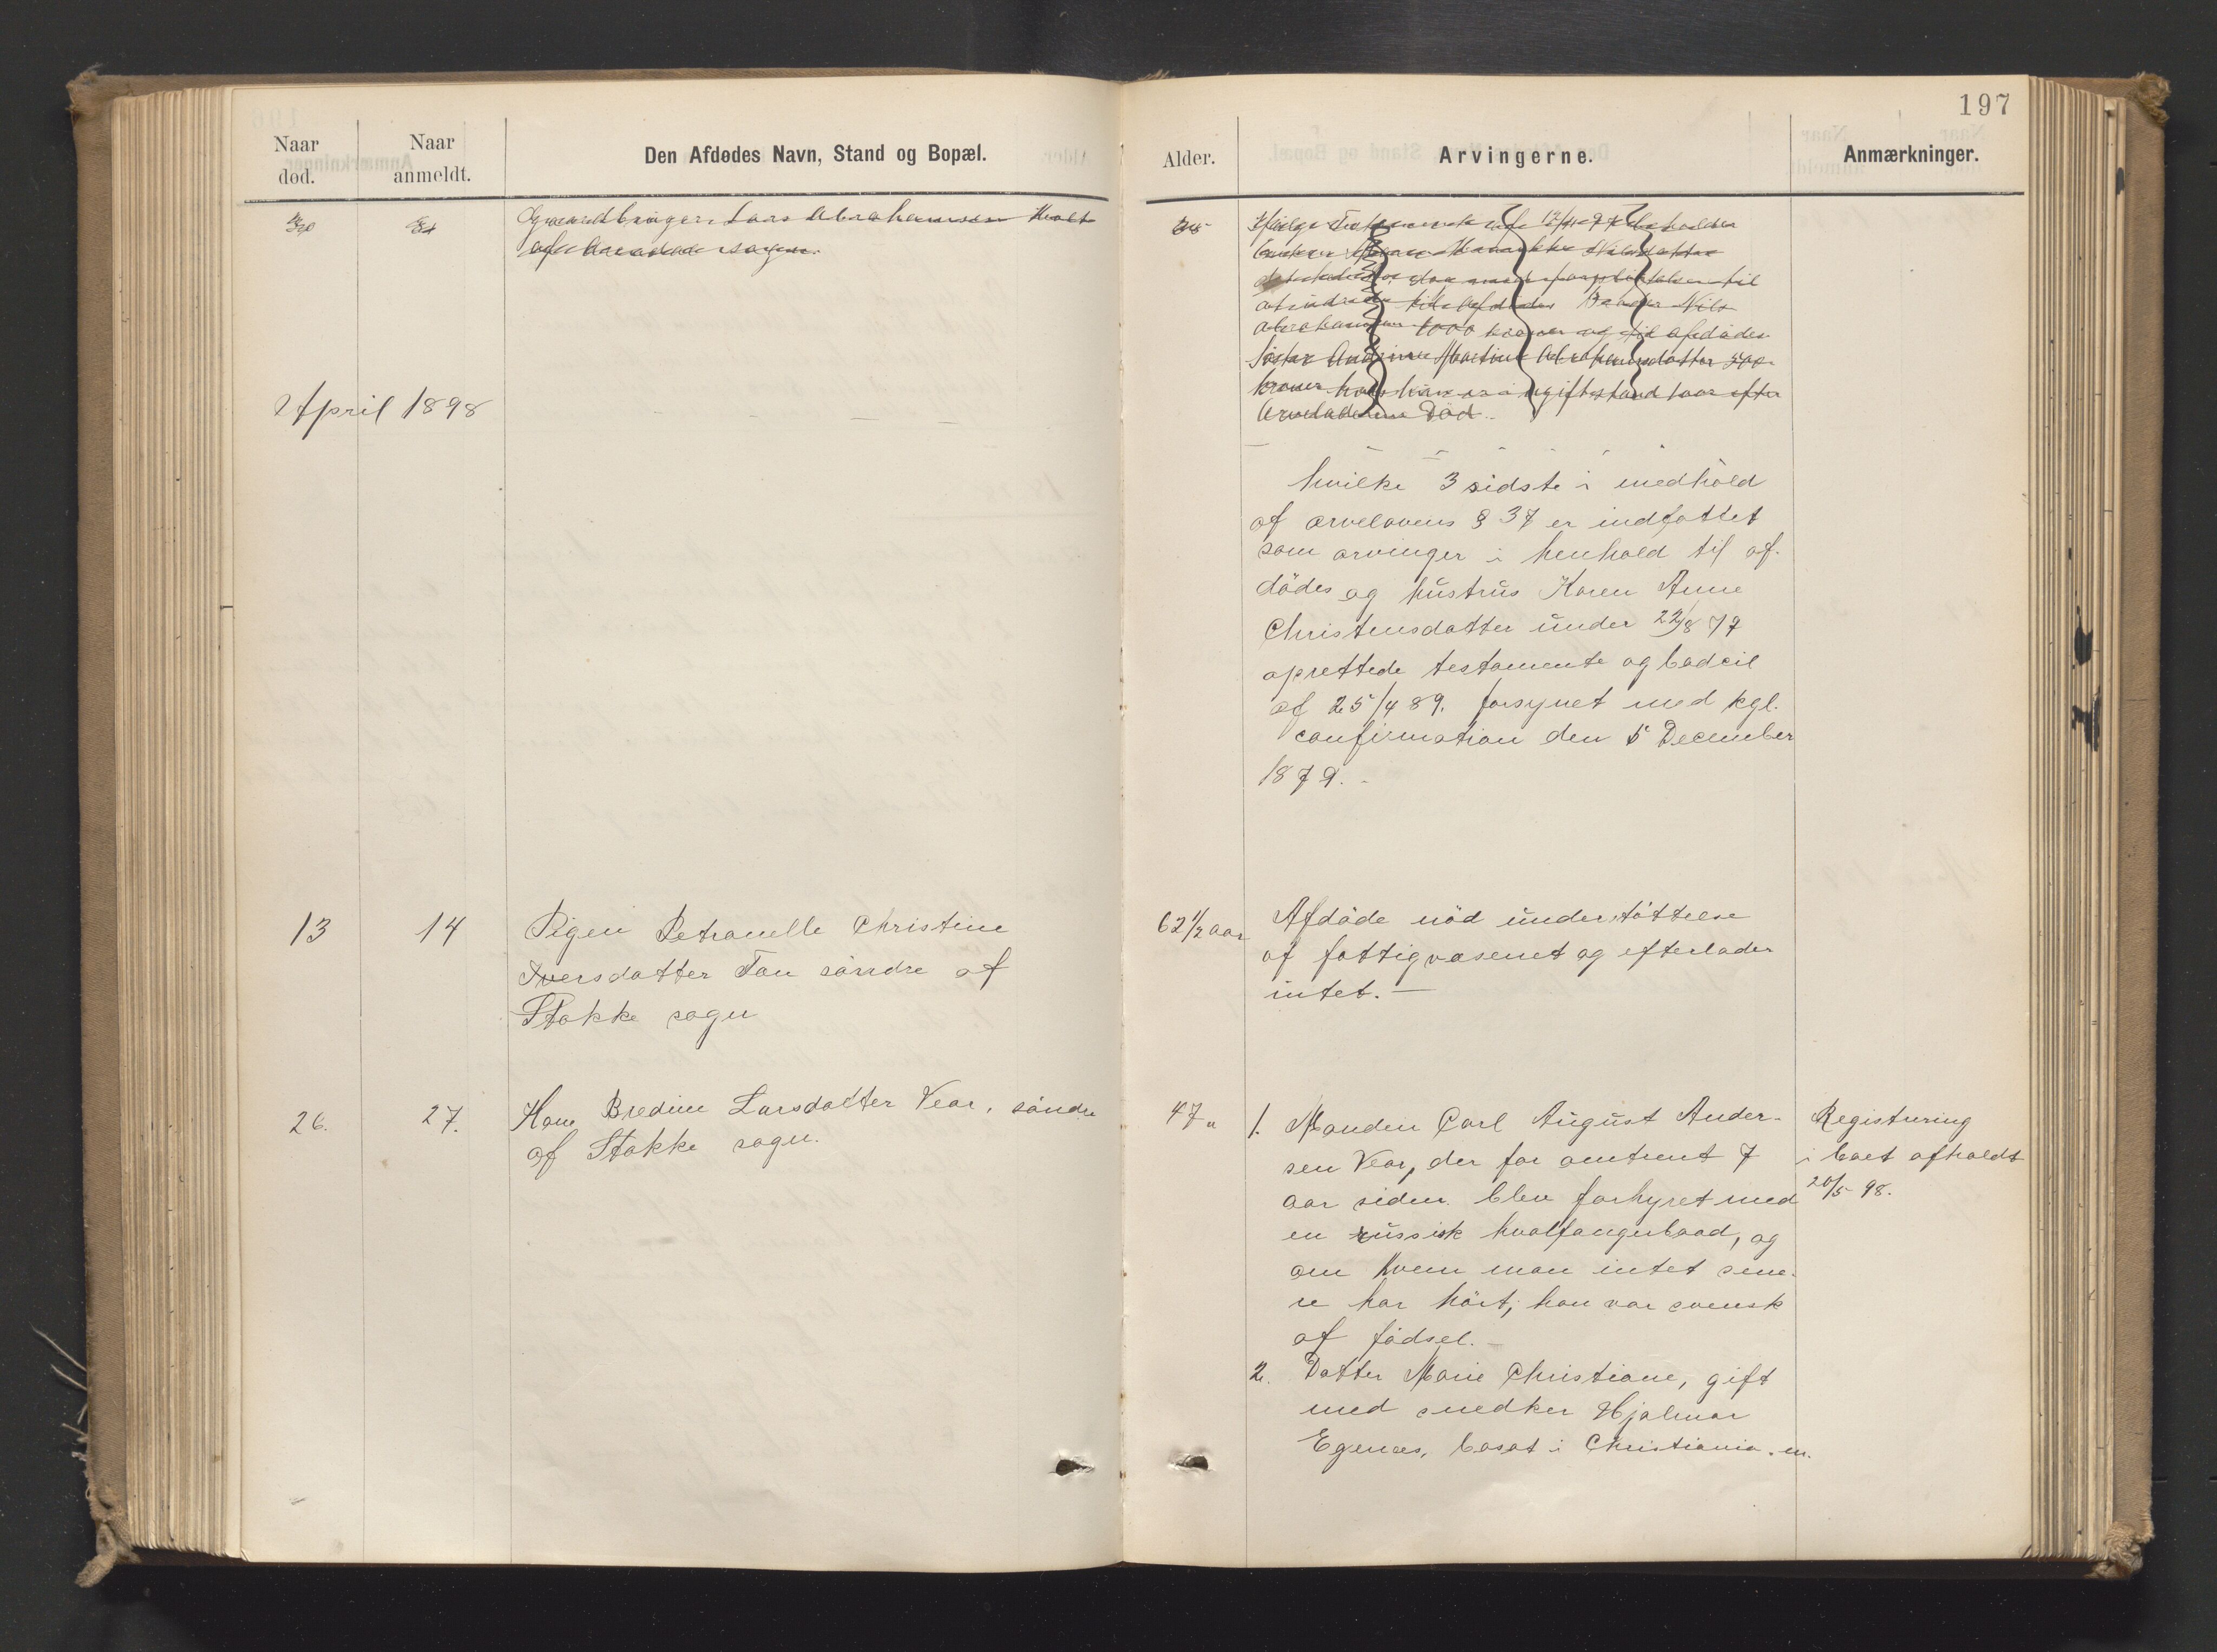 197
Naar død.
Naar anmeldt.
Den Afdødes Navn, Stand og Bopæl.
Alder.
Arvingerne.
Anmærkninger.
30
31
Gaardbruger Lars Abrahamsen Holt
af sogn.
35
Ifølge Testamente af 12/11 97 beholder
Nilsdatter
til
til Afdødes Broder Nils
Abrahamsen 1000 kroner og til afdødes
Søster Martine Abrahamsdatter 500
kroner hvis hun er i ugift stand 1 aar efter
Død.
April 1898
hvilke 3 sidste i medhold
af arvelovens § 37 er indsattet
som arvinger i henhold til af-
dødes og hustrus Karen Anne
Christensdatter under 22/8 79
oprettede testamente og codcil
af 25/4 89. forsynet med kgl.
confirmation den 5 December
1879.-
13
14
Pigen Petronelle Christine
Iversdatter Tan søndre af
Stokke sogn
62 1/2 aar
Afdøde nød understøttelse
af fattigvæsenet og efterlader
intet.-
26.
27.
Hane Bredine Larsdatter Vear, søndre
af Stokke sogn.
47 "
1. Manden Carl August Ander-
sen Vear, der for omtrent 7
aar siden blev forhyret med
en russisk hvalfangerbaad, og
om hvem man intet sene-
re har hørt; han var svensk
af fødsel.-
2. Datter Marie Christiane, gift
med snedker Hjalmar
Egenæs, bosat i Christiania. m.
Registrering
i boet afholdt
20/5 98.